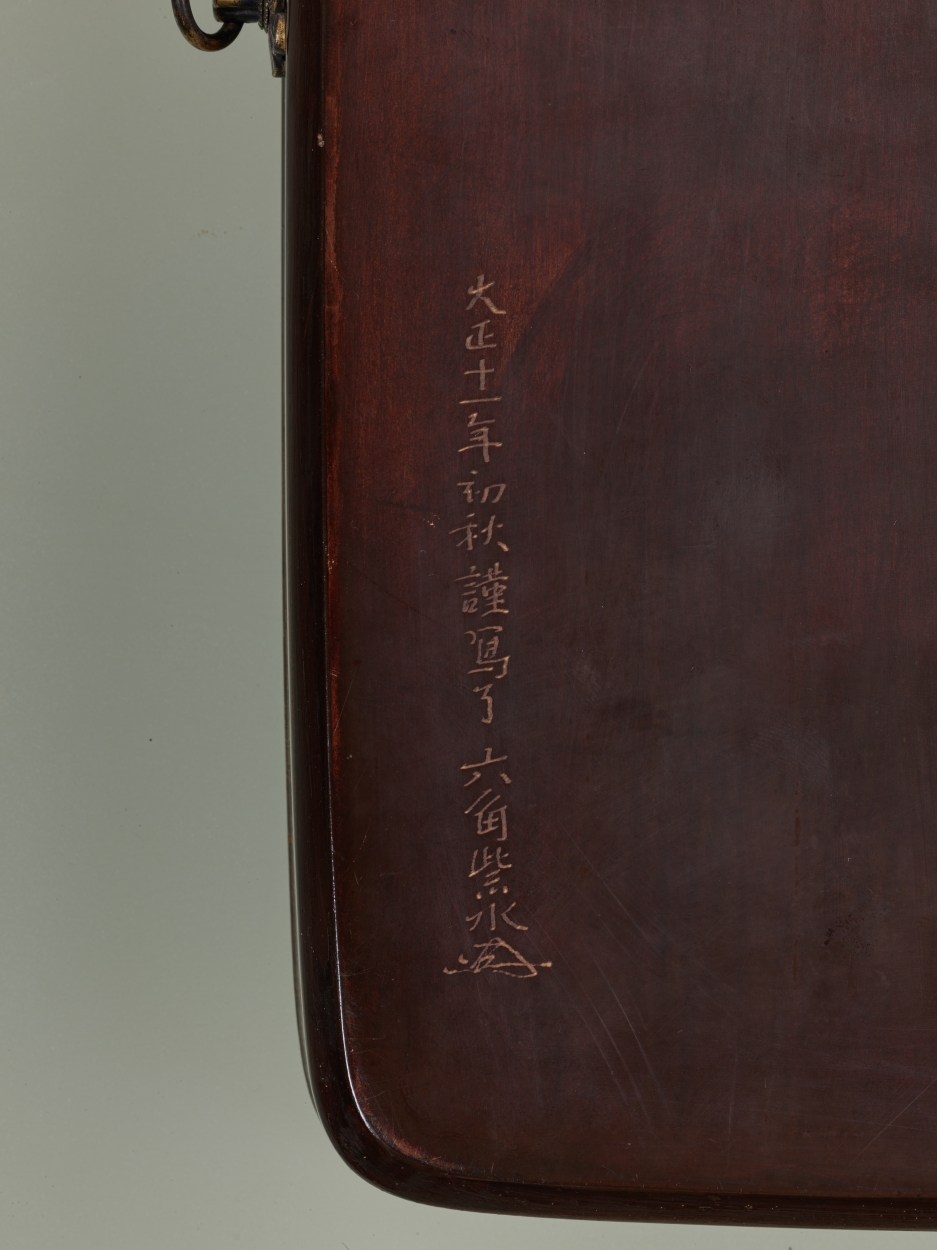 大正十一年初秋謹寫了 六角紫水